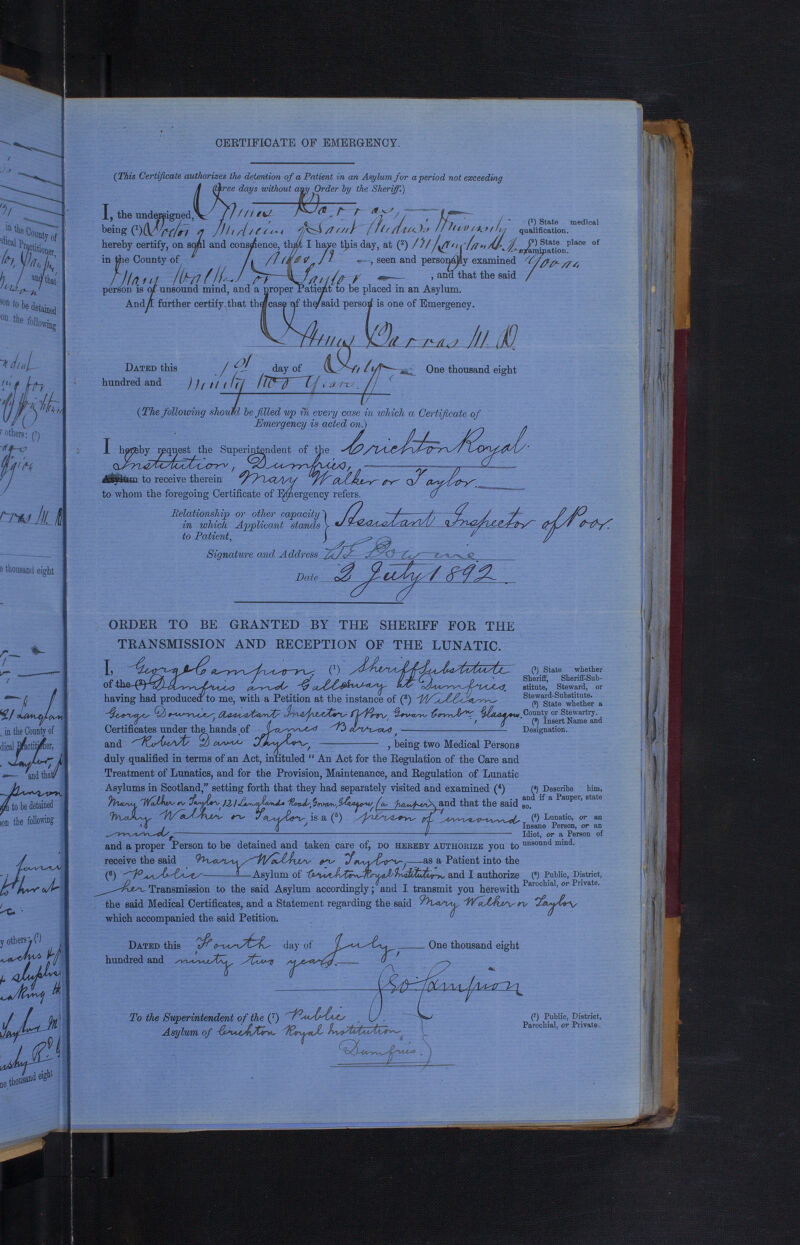 in the County of
dical Practitioner,
and that
son to be detained
on the following
others: (²)
e thousand eight
121 Langlan
in the County of
dical Practitioner,
and that
to be detained
on the following
y others: (²)
ne thousand eight
CERTIFICATE OF EMERGENCY.
(This Certificate authorizes the detention of a Patient in an Asylum for a period not exceeding
three days without any Order by the Sheriff.)
I, the undersigned, James Barras,
being (¹) Doctor of Medicine of Saint Andrew's University
hereby certify, on soul and conscience, that I have this day, at (²) 121 Langlands
in the County of , seen and personally examined
Mary Walker or Taylor , and that the said
person is of unsound mind, and a proper Patient to be placed in an Asylum.
And I further certify that the case of the said person is one of Emergency.
James Barras M.D.
DATED this 1st day of July One thousand eight
hundred and ninety two years.
(The following should be filled up in every case in which a Certificate of
Emergency is acted on.)
I hereby request the Superintendent of the Crichton Royal
Institution, Dumfries,
Asylum to receive therein Mary Walker or Taylor.
to whom the foregoing Certificate of Emergency refers.
Relationship or other capacity
in which Applicant stands
to Patient, Assistant Inspector of Poor.
Signature and Address W G Downie
Date 2 July 1892.
(¹) State medical
qualification.
(²) State place of
examination.
Govan
ORDER TO BE GRANTED BY THE SHERIFF FOR THE
TRANSMISSION AND RECEPTION OF THE LUNATIC.
I, George Campion, (¹) Sheriff Substitute
of the (²) Dumfries and Galloway at Dumfries,
having had produced to me, with a Petition at the instance of (³) William
George Downie, assistant Inspector of Poor, Govan Combn. Glasgow,
Certificates under the hands of James Barras,
and Robert David Taylor, , being two Medical Persons
duly qualified in terms of an Act, intituled "An Act for the Regulation of the Care and
Treatment of Lunatics, and for the Provision, Maintenance, and Regulation of Lunatic
Asylums in Scotland," setting forth that they had separately visited and examined (⁴)
Mary Walker or Taylor, 121 Langlands Road, Govan, Glasgow, (a pauper) and that the said
Mary Walker or Taylor, is a (⁵) person of unsound
mind,
and a proper Person to be detained and taken care of, DO HEREBY AUTHORIZE YOU to
receive the said Mary Walker or Taylor, as a Patient into the
(⁶) Public Asylum of Crichton Royal Institution and I authorize
her Transmission to the said Asylum accordingly; and I transmit you herewith
the said Medical Certificates, and a Statement regarding the said Mary Walker or Taylor
which accompanied the said Petition.
DATED this Fourth day of July, One thousand eight
hundred and ninety two years.
Geo. Campion
To the Superintendent of the (⁷) Public
Asylum of Crichton Royal Institution
Dumfries.
(¹) State whether
Sheriff, Sheriff-Sub-
stitute, Steward, or
Steward-Substitute.
(²) State whether a
County or Stewartry.
(³) Insert Name and
Designation.
(⁴) Describe him,
and if a Pauper, state
so.
(⁵) Lunatic, or an
Insane Person, or an
Idiot, or a Person of
unsound mind.
(⁶) Public, District,
Parochial, or Private.
(⁷) Public, District,
Parochial, or Private.